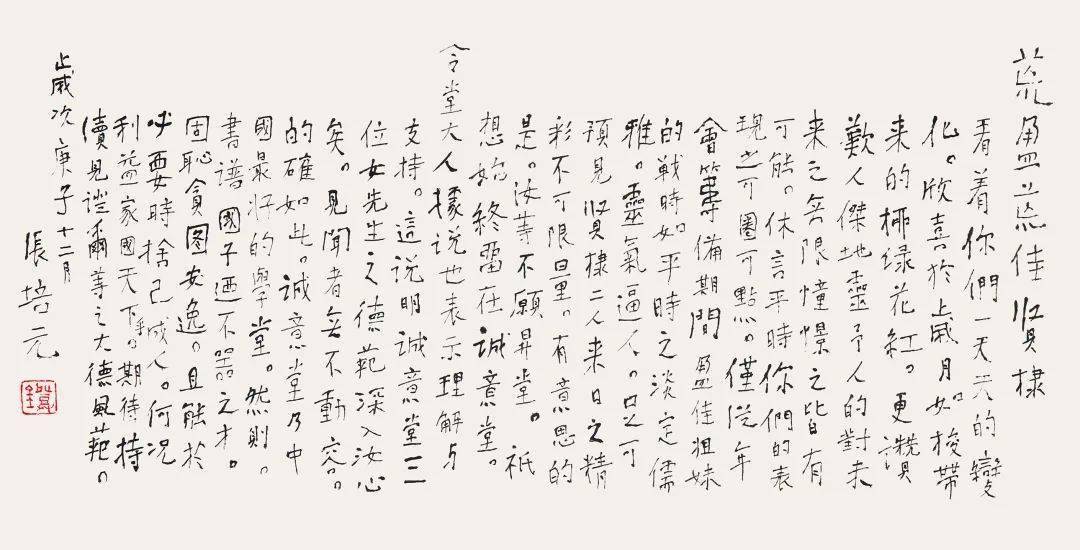 盈 佳賢棣
看着你們一天天的變
化。欣喜於歲月如梭帶
来的柳绿花紅。更讚
歎人傑地靈予人的對未
来之無限憧憬之皆有
可能。休言平時你們的表
現之可圈可點。僅從年
會籌備期間盈佳姐妹
的戰時如平時之淡定儒
雅。靈氣逼人。足可
預見賢棣二人来日之精
彩不可限量。有意思的
是。汝等不願昇堂。祇
想始終留在誠意堂。
令堂大人據说也表示理解与
支持。這说明誠意堂三
位女先生之德範深入汝心
矣。見聞者無不動容。
的確如此。誠意堂乃中
國最好的學堂。然則。
書谱國子迺不器之才。
固恥貪图安逸。且能於
必要時捨己成人。何况
利益家國天下事。期待持
續見證爾等之大德風範。
歲次庚子十二月
張培元